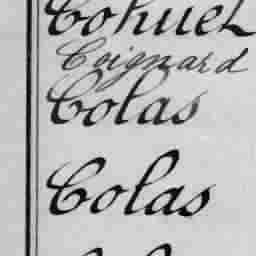 Cohuet
Coignard
Colas
Colas